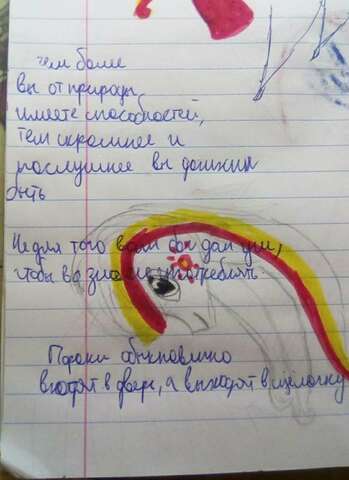 тем более
вы от природы
имеете способностей,
тем скромнее и
послушнее вы должны
быть
Не для того вам бог дал ум,
чтобы во зло употреблять
Пороки обыкновенно
входят в дверь, а выходят в щёлочку